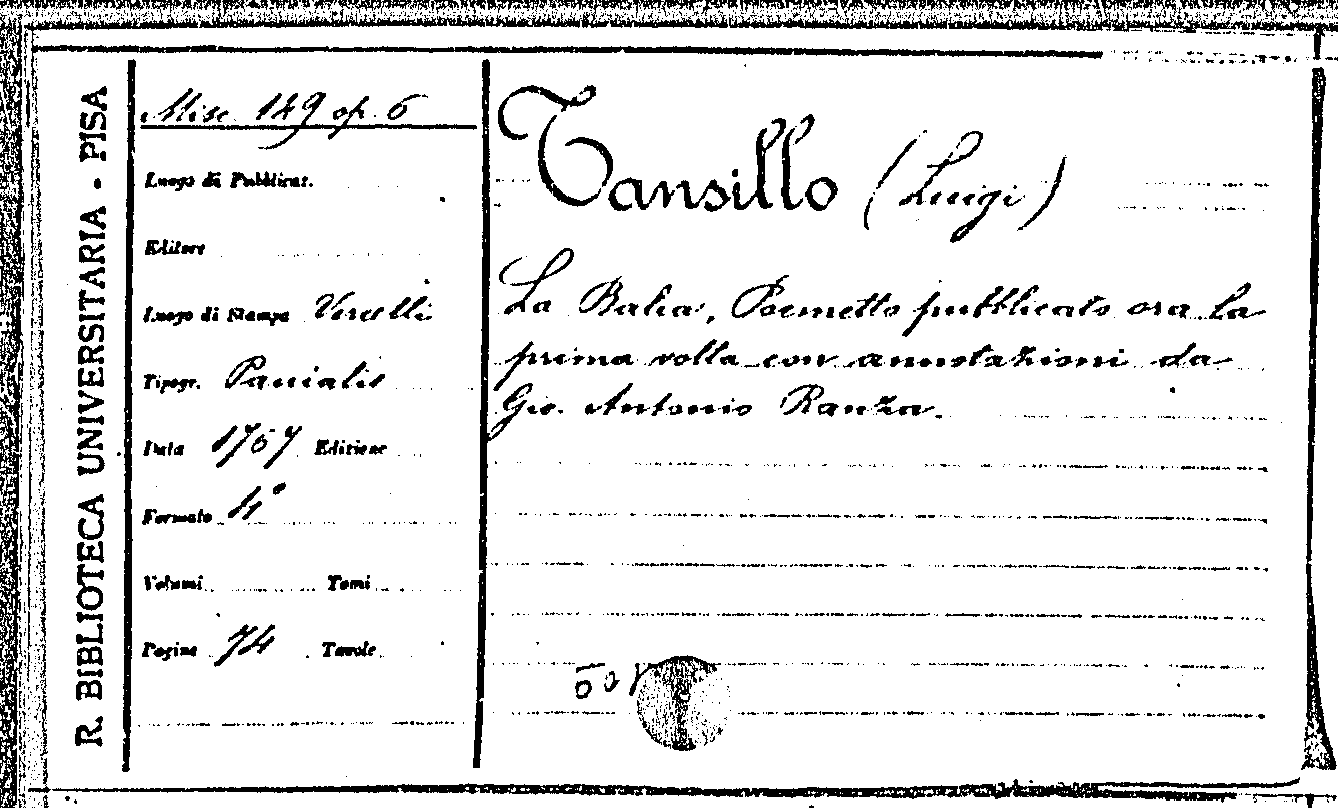 R. BIBLIOTECA UNIVERSITARIA - PISA
Misc. 149 op. 6
Luogo di Pubblicaz.
Editore
Luogo di Stampa Vercelli
Tipogr. Panialis
Data 1767 Edizione
Formato 4°
Volumi Tomi
Pagine 74 Tavole
Tansillo (Luigi)
La Balia, Poemetto pubblicato ora la
prima volta con annotazioni da
Gio. Antonio Ranza.